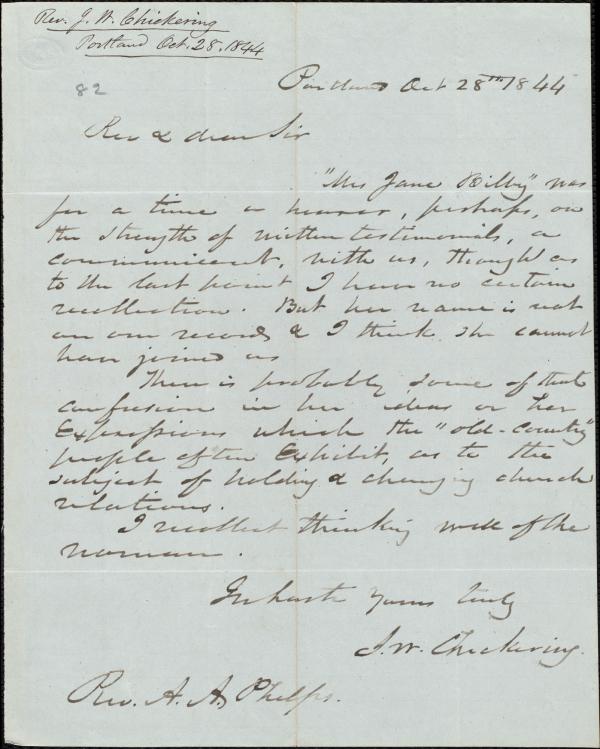 Rev. J. W. Chickering
Portland Oct. 28. 1844
82
Portland Oct 28th 1844
Rev & dear Sir
"Mrs Jane Bilby" was
for a time a hearer, perhaps, on
the strength of written testimonials, a
communicant, with us, though as
to the last point I have no certain
recollection. But her name is not
on our records & I think she cannot
have joined us
There is probably some of that
confusion in her ideas or her
Expressions which the "old-country"
people often Exhibit, as to the
subject of holding & changing church
relations.
I recollect thinking well of the
woman.
In haste yours truly
J. W. Chickering.
Rev. A. A. Phelps.